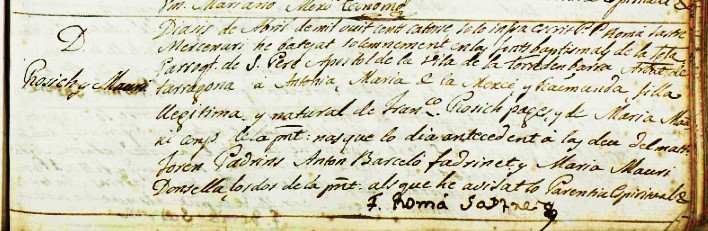 Dia dis de Abril de mil vuit cents catorse jo lo infra escrit P. Roma Sastre
D. Mercenari he batejat solemnement en las fonts baptismals de la Iglª
Parroql. de S. Pere Apostol de la Vila de la Torredenbarra Archbt. de
Rosich y Mauri Tarragona a Antonia, Maria de la Mercè, y Raimunda filla
llegitima y natural de Franco. Rosich pages, y de Maria Mau
ri conjs. de la pnt: nasque lo dia antecedent á las deu del matí.
Foren Padrins Anton Barceló fadrinet y Maria Mauri
Donsella, los dos de la pnt: als que he avisat lo Parentiu Espiritual &
F. Romà Sastre